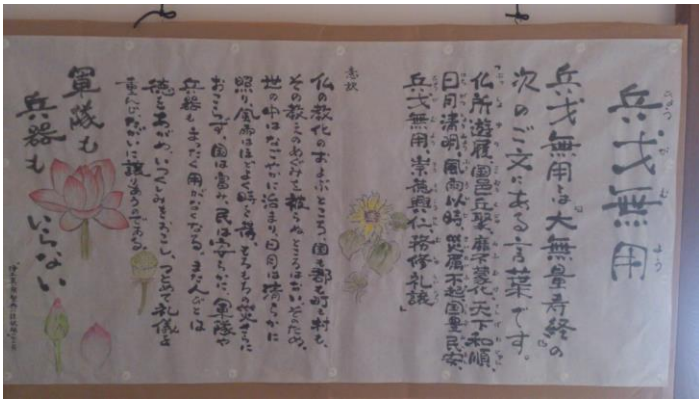 兵戈無用
ひょうがむよう
兵戈無用とは大無量寿経の
次のご文にある言葉です。
仏所遊履、国邑丘聚、靡不蒙化、天下和順、
日月清明、風雨以時、災厲不起、国豊民安、
兵戈無用、崇徳興仁、務修礼譲」
意訳
仏の教化のおよぶところ、国も郡も町も村も、
その教えのめぐみを被らぬところはない。そのため、
世の中はなごやかに治まり、日月は清らかに
照り、風雨はほどよく時を得、そらもちの災さらに
おこらず、国は富み、民は安らかに、軍隊や
兵器もまったく用がなくなる。また人びとは
徳をあがめ、いつくしみをおこし、つとめて礼儀を
重んじ、たがいに譲りあうのである。
軍隊も
兵器も
いらない